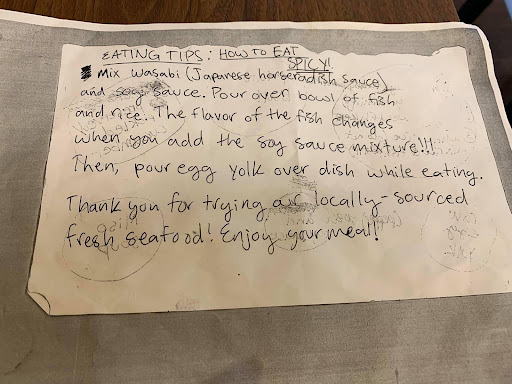 EATING TIPS: HOW TO EAT
SPICY!
Mix wasabi (Japanese horseradish sauce)
and soy sauce. Pour over bowl of fish
and rice. The flavor of the fish changes
when you add the soy sauce mixture!!!
Then, pour egg yolk over dish while eating.
Thank you for trying our locally-sourced
fresh seafood! Enjoy your meal!